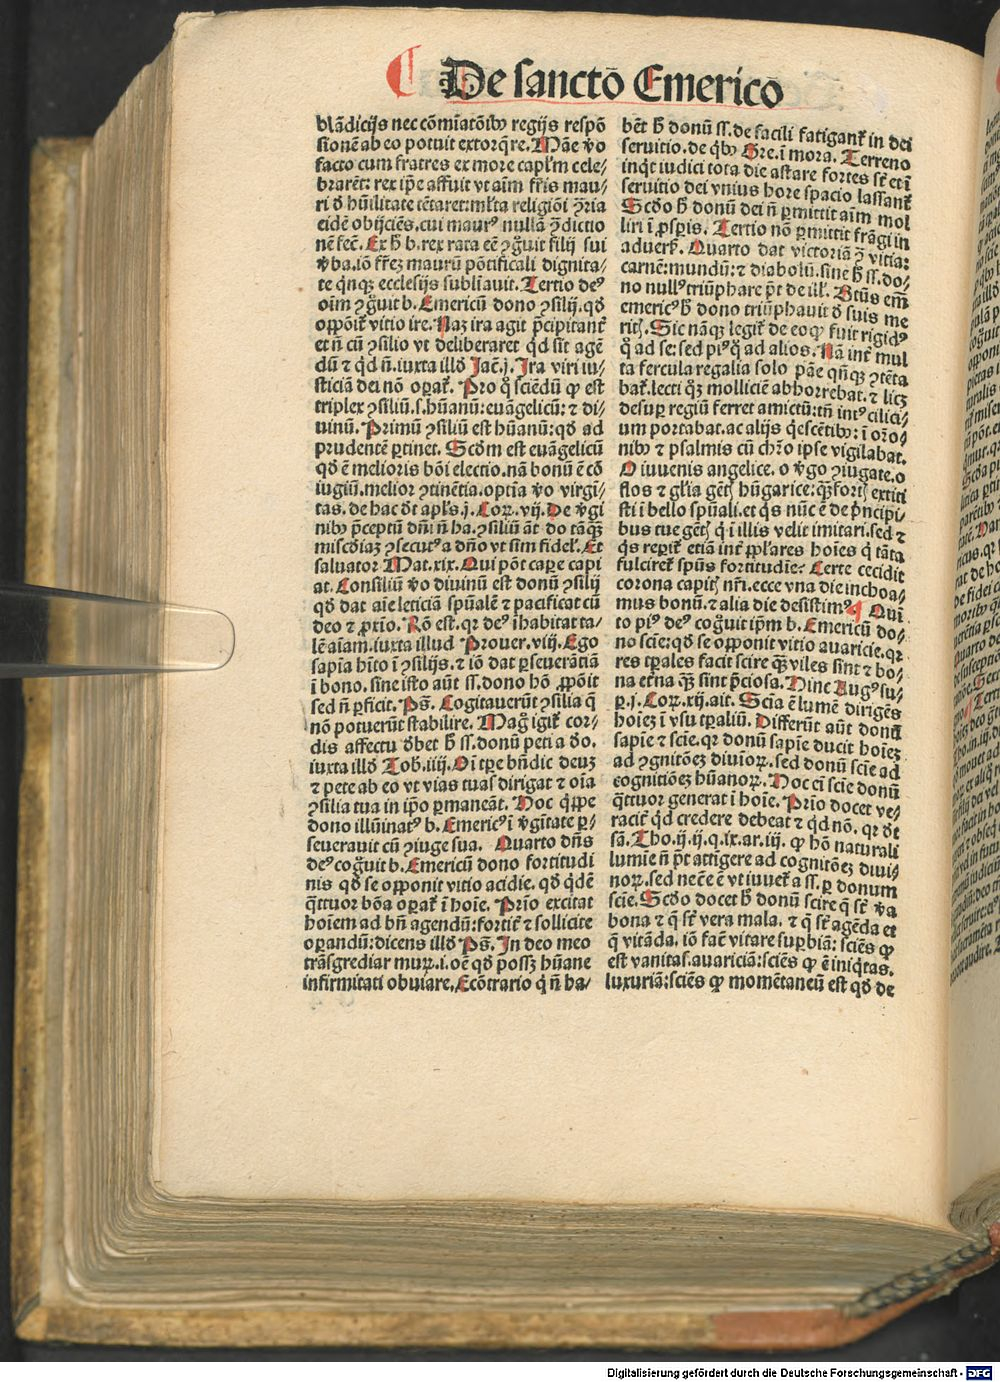 De sanctō Emericō
blādicijs nec cōmīatōibꝰ regijs respō
sionē ab eo potuit extorq̄re. Māe v̊o
facto cum fratres ex more capl'm cele/
brarēt: rex ip̄e affuit vt aīm fr̄is mau/
ri ꝺ hūilitate tētaret: ml'ta religiōi ꝯria
eidē obijciēs. cui maurꝰ nullā ꝯdictio
nē fec̄. Ex h̄ b. rex rata eē ꝯg̊uit filij sui
v̊ba. iō fr̄eꝫ maurū pōtificali dignita/
te q̄nqꝫ ecclesijs sublīauit. Tertio deꝰ
oīm ꝯg̊uit b. Emericū dono ꝯsilij. qd̄
oppōit̄ vitio ire. Naꝫ ira agit p̄cipitant̄
et n̄ cū ꝯsilio vt deliberaret qd̄ sit agē
dū ⁊ qd̄ n̄. iuxta illd̄ Jac̄. j. Ira viri iu/
sticiā dei nō opat̄. Pro q̊ sciēdū ꝙ est
triplex ꝯsiliū. s. hūanū: euāgelicū: ⁊ di/
uinū. Primū ꝯsiliū est hūanū: qd̄ ad
prudentē ꝑtinet. Scd̄m est euāgelicū
qd̄ ē melioris bōi electio. nā bonū ē cō
iugiū. melior ꝯtinētia. optīa v̊o virgī/
tas. de hac dt̄ apl's. j. Coꝝ. vij. De v̊gi
nibꝰ p̄ceptū dn̄i n̄ ha. ꝯsiliū āt do tāq̄ꝫ
misc̄diaꝫ ꝯsecutꝰ a dn̄o vt sim fidel'. Et
saluator Mat. xix. Qui pōt caꝑe capi
at. Consiliū v̊o diuinū est donū ꝯsilij
qd̄ dat aīe leticiā spūalē ⁊ pacificat cū
deo ⁊ ꝓxīo. Rō est. qꝛ deꝰ īhabitat ta/
lē aīam. iuxta illud Prouer. viij. Ego
sapīa hīto ī ꝯsilijs. ⁊ iō dat ꝑseuerātiā
ī bono. sine isto aūt ss. dono hō ꝓpōit
sed n̄ ꝑficit. Ps̄. Cogitauerūt ꝯsilia q̄
nō potuerūt stabilire. Mag̊ igit̄ cor/
dis affectu ꝺbet h̄ ss. donū peti a ꝺo.
iuxta illd̄ Tob̄. iiij. Oī tꝑe bn̄dic deuꝫ
⁊ pete ab eo vt vias tuas dirigat ⁊ oīa
ꝯsilia tua in ip̄o ꝑmaneāt. Hoc q̄ppe
dono illūinatꝰ b. Emericꝰ ī v̊gītate ꝑ/
seuerauit cū ꝯiuge sua. Quarto dn̄s
deꝰ cog̊uit b. Emericū dono fortitudi
nis qd̄ se opponit vitio acidie. qd̄ q̄dē
q̄ttuor bōa opat̄ ī hoīe. Prīo excitat
hoīem ad bn̄ agendū: fortit̄ ⁊ sollicite
opandū: dicens illd̄ Ps̄. In deo meo
trāsgrediar muꝝ. i. oē qd̄ possꝫ hūane
infirmitati obuiare. Ecōtrario q̄ n̄ ha/
bēt h̄ donū ss. de facili fatigant̄ in dei
seruitio. de qb̄ꝰ Gre. ī mora. Terreno
inq̄t iudici tota die astare fortes st̄ et ī
seruitio dei vnius hore spacio lassant̄
Scd̄o h̄ donū dei n̄ ꝑmittit aīm mol
liri ī ꝓsꝑis. Tertio nō ꝑmittit frāgi in
aduers̄. Quarto dat victoriā ꝯ vitia:
carnē: mundū: ⁊ diabolū. sine h̄ ss. do/
no nullꝰ triūphare pt̄ de ill'. Btūs em̄
emericꝰ h̄ dono triūphauit ꝺ suis me
ritꝭ. Sic nāqꝫ legit̄ de eo ꝙ fuit rigidꝰ
q̊ ad se: sed piꝰ q̊ ad alios. Nā int̄ mul
ta fercula regalia solo pāe qn̄qꝫ ꝯtēta
bat̄. lecti q̊ꝫ molliciē abhorrebat. ⁊ licꝫ
desuꝑ regiū ferret amictū: tn̄ intꝰ cilici/
um portabat. ac alijs q̄escētibꝰ: ī orō/
nibꝰ ⁊ psalmis cū chr̄o ipse vigilabat.
O iuuenis angelice. o v̊go ꝯiugate. o
flos ⁊ gl'ia gētꝭ hūgarice: q̄ꝫ fortꝭ extiti
sti ī bello spūali. et q̄s nūc ē de p̄ncipi/
bus tue gētꝭ q̄ ī illis velit imitari. sed ⁊
q̄s repit̄ etiā int̄ ppl'ares hoīes q̄ tāta
fulciret̄ spūs fortitudīe: Certe cecidit
corona capitꝭ nr̄i. ecce vna die inchoa/
mus bonū. ⁊ alia die desistimꝰ ¶ Quī
to piꝰ deꝰ cog̊uit ip̄m b. Emericū do/
no scie: qd̄ se opponit vitio auaricie. qꝛ
res tꝑales facit scire q̄ꝫ viles sint ⁊ bo/
na et̄na q̄ꝫ sint p̄ciosa. Hinc Augꝰ su/
ꝑ. j. Coꝝ. xij. ait. Scīa ē lumē dirigēs
hoīeꝫ ī vsu tꝑaliū. Differūt aūt donū
sapīe ⁊ scie. qꝛ donū sapīe ducit hoīeꝫ
ad ꝯgnitōeꝫ diuīoꝝ. sed donū scie ad
cognitiōeꝫ hūanoꝝ. Hoc eī scie donū
q̄ttuor generat ī hoīe. Prīo docet ve/
racit̄ qd̄ credere debeat ⁊ qd̄ nō. qꝛ dt̄
sā. Tho. ij. ij. q. ix. ar. iij. ꝙ hō naturali
lumīe n̄ pt̄ attīgere ad cognitōeꝫ diui/
noꝝ. sed necē ē vt iuuet̄ a ss. ꝑ donum
scie. Scd̄o docet h̄ donū scire q̄ st̄ v̊a
bona ⁊ q̄ st̄ vera mala. ⁊ q̄ st̄ agēda et
q̄ vitāda. iō fac̄ vitare suꝑbiā: sciēs ꝙ
est vanitas. auariciā: sciēs ꝙ ē iniq̄tas.
luxuriā: sciēs ꝙ momētaneū est qd̄ de
Digitalisierung gefördert durch die Deutsche Forschungsgemeinschaft - DFG